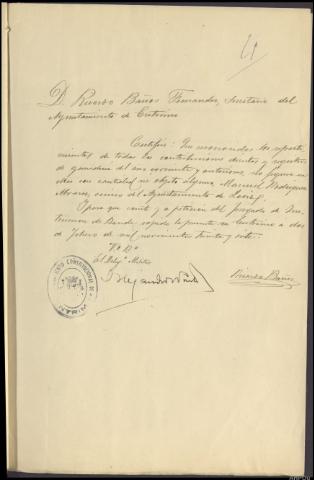 D. Ricardo Baños Fernandez, Secretario del
Ayuntamiento de Entrimo
Certifico: Que examinados los reparti-
mientos de todas las contribuciones directas y registros
de ganaderia del año corriente y anteriores, no figura en
ellos con cantidad ni objeto alguno, Manuel
Alvarez, vecino del Ayuntamiento de
Y para que conste y a peticion del Juzgado de Ins-
truccion de Bande, expido la presente en Entrimo a dos
de Febrero de mil novecientos treinta y siete.
Vº Bº
El Delegº Militar
Alejandro
Ricardo Baños
ENTRIMO